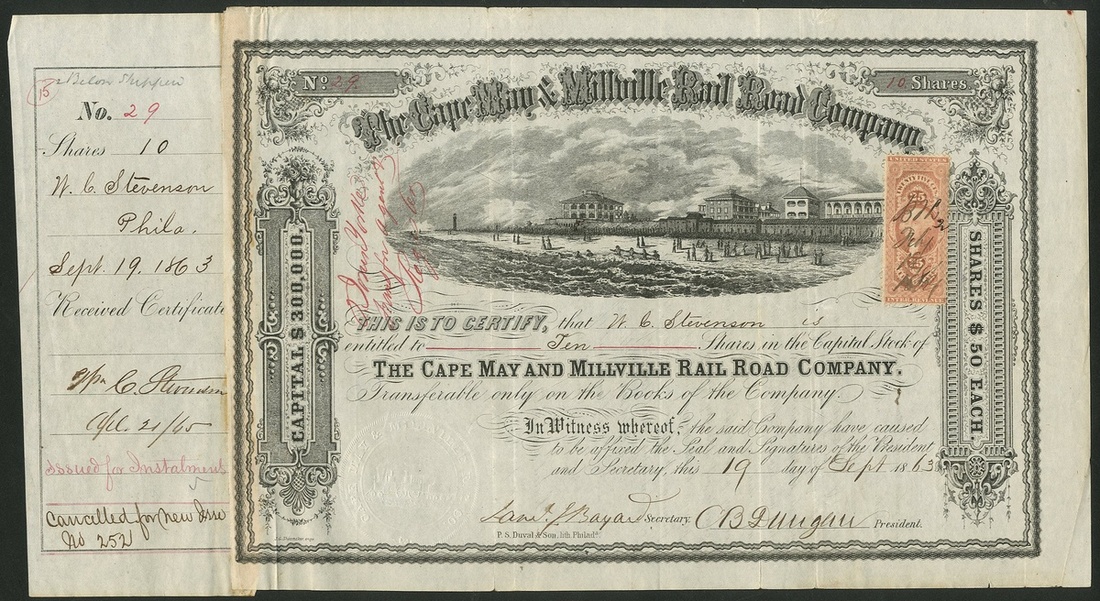 15
No. 29
Shares 10
W. C. Stevenson
Phila.
Sept. 19. 1863
Received Certificate
Wm C. Stevenson
Oct. 21/65
issued for Instalment
Cancelled for new Issue
No 252
No 29
10 Shares.
The Cape May & Millville Rail Road Company.
CAPITAL $ 300,000.
SHARES $ 50 EACH.
UNITED STATES
25
INTER. REV.
THIS IS TO CERTIFY, that W. C. Stevenson is
entitled to Ten Shares, in the Capital Stock of
THE CAPE MAY AND MILLVILLE RAIL ROAD COMPANY.
Transferable only on the Books of the Company.
In Witness whereof, the said Company have caused
to be affixed the Seal and Signatures of the President
and Secretary, this 19 day of Sept 1863
Bayard Secretary. President.
P. S. Duval & Son, lith Philada.